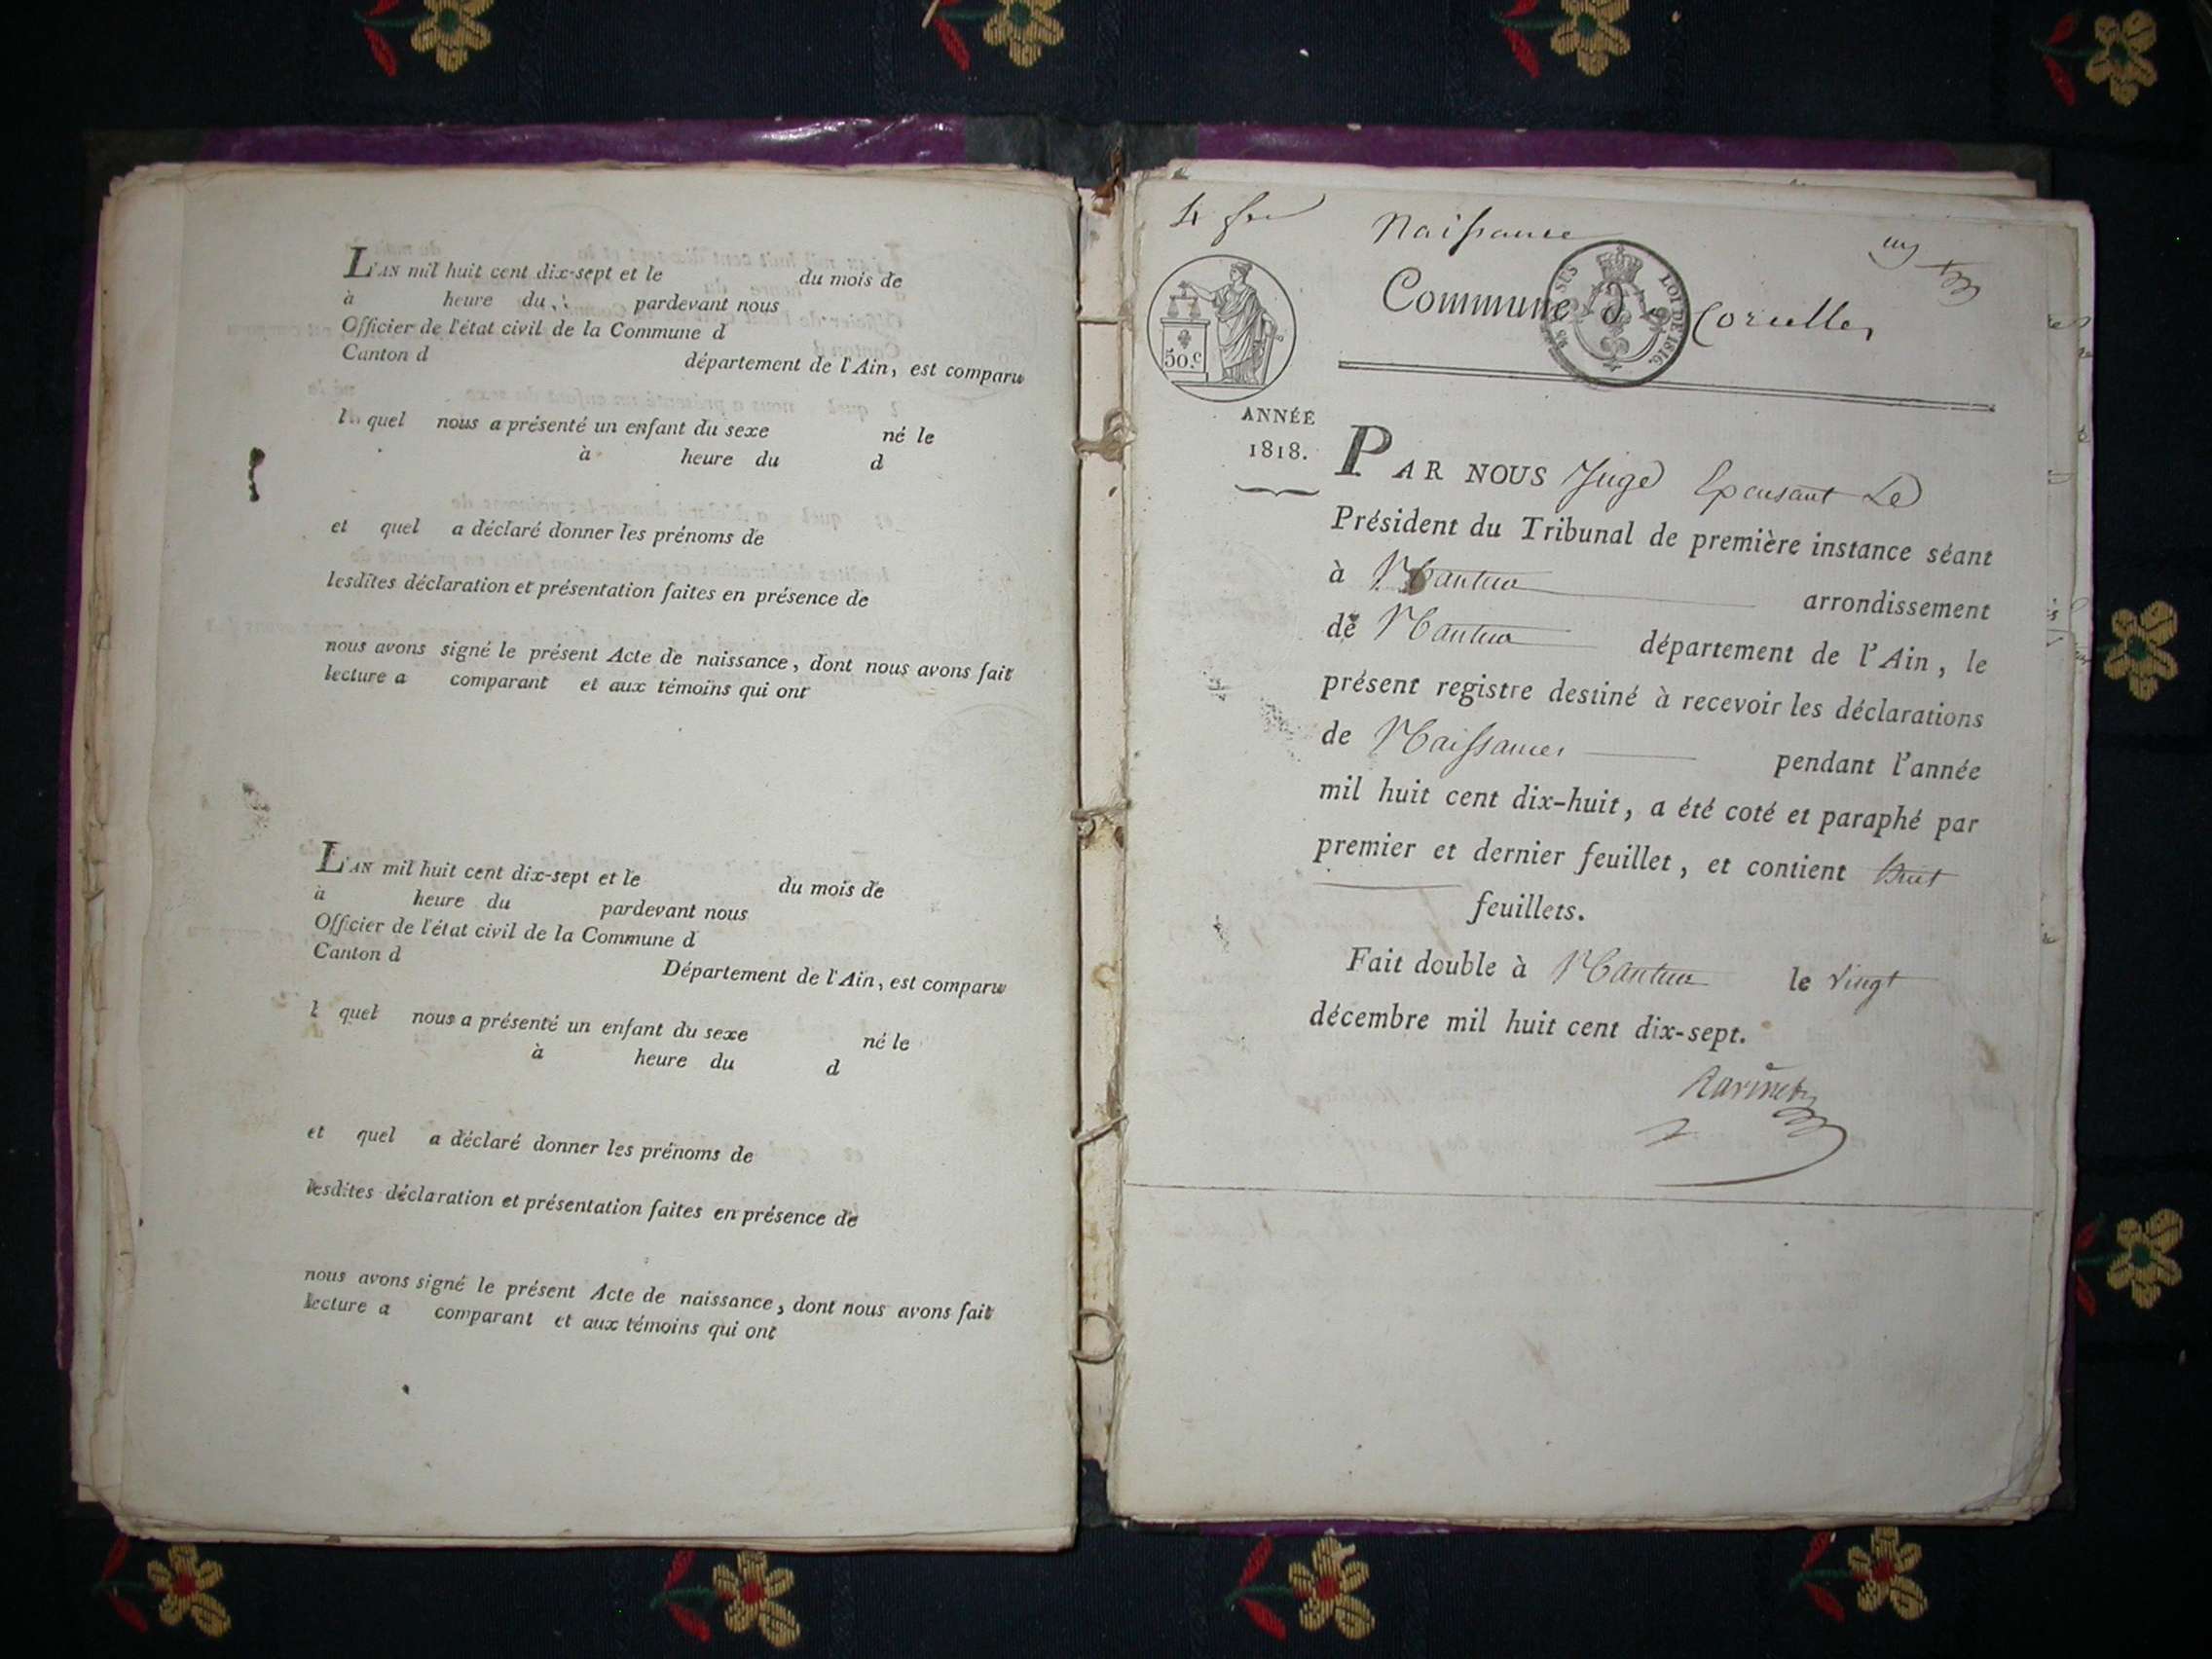 L'AN mil huit cent dix-sept et le du mois de
à heure du pardevant nous
Officier de l'état civil de la Commune d
Canton d département de l'Ain, est comparu
l quel nous a présenté un enfant du sexe né le
à heure du d
et quel a déclaré donner les prénoms de
lesdites déclaration et présentation faites en présence de
nous avons signé le présent Acte de naissance, dont nous avons fait
lecture a comparant et aux témoins qui ont
L'AN mil huit cent dix-sept et le du mois de
à heure du pardevant nous
Officier de l'état civil de la Commune d
Canton d Département de l'Ain, est comparu
l quel nous a présenté un enfant du sexe né le
à heure du d
et quel a déclaré donner les prénoms de
lesdites déclaration et présentation faites en présence de
nous avons signé le présent Acte de naissance, dont nous avons fait
lecture a comparant et aux témoins qui ont
Naissance
Commune d
LOI DE 1816.
50.c
ANNÉE
1818.
PAR NOUS Juge
Président du Tribunal de première instance séant
à Nantua arrondissement
de Nantua département de l'Ain, le
présent registre destiné à recevoir les déclarations
de Naissances pendant l'année
mil huit cent dix-huit, a été coté et paraphé par
premier et dernier feuillet, et contient huit
feuillets.
Fait double à Nantua le vingt
décembre mil huit cent dix-sept.